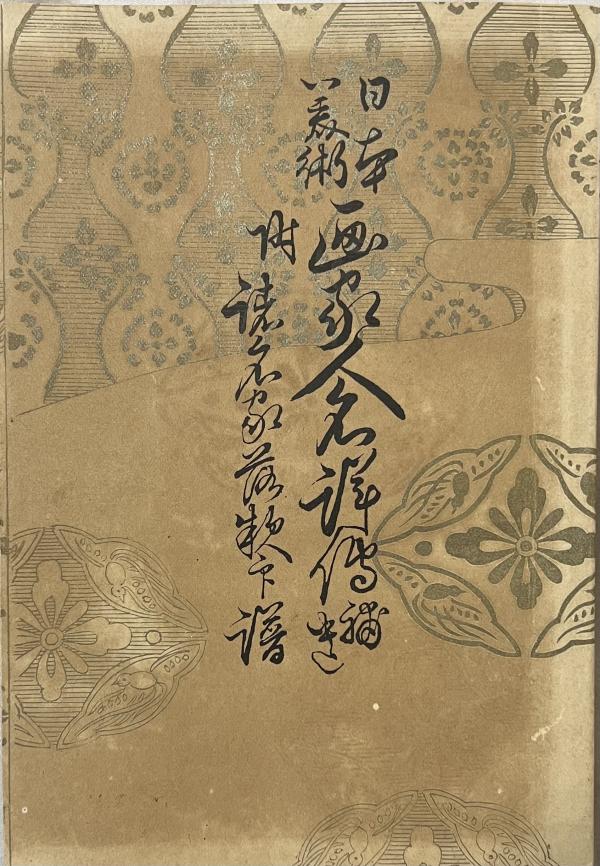 日本
美術
画家人名詳傳補遺
附諸名家落款印譜